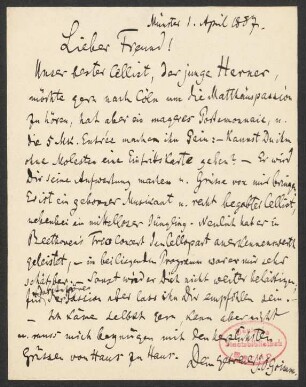 Münster 1. April 1887.
Lieber Freund!
Unser bester Cellist, der junge Herner,
möchte gern nach Cöln um die Matthäuspassion
zu hören, hat aber ein mageres Portemonnaie, u.
die 5 Mk. Entrée machen ihm Pein: – Kannst Du ihm
ohne Molesten eine Eintrittskarte geben? – Er wird
Dir seine Aufwartung machen u. Grüsse von mir bringen.
Es ist ein geborner Musikant u. recht begabter Cellist
nebenbei ein mittelloser Jüngling. – Neulich hat er in
Beethovens Trio Concert den Cellopart anerkennenswerth
geleistet, – in beiliegendem Programm waren wir sehr
– Sonst würde er Dich nicht weiter belästigen,
für die Passion aber lass ihn Dir empfohlen sein. –
Ich käme selbst gern kann aber nicht
u. muss mich begnügen mit den herzlichsten
Grüssen von Haus zu Haus.
Dein getreuer
J. O. Grimm.